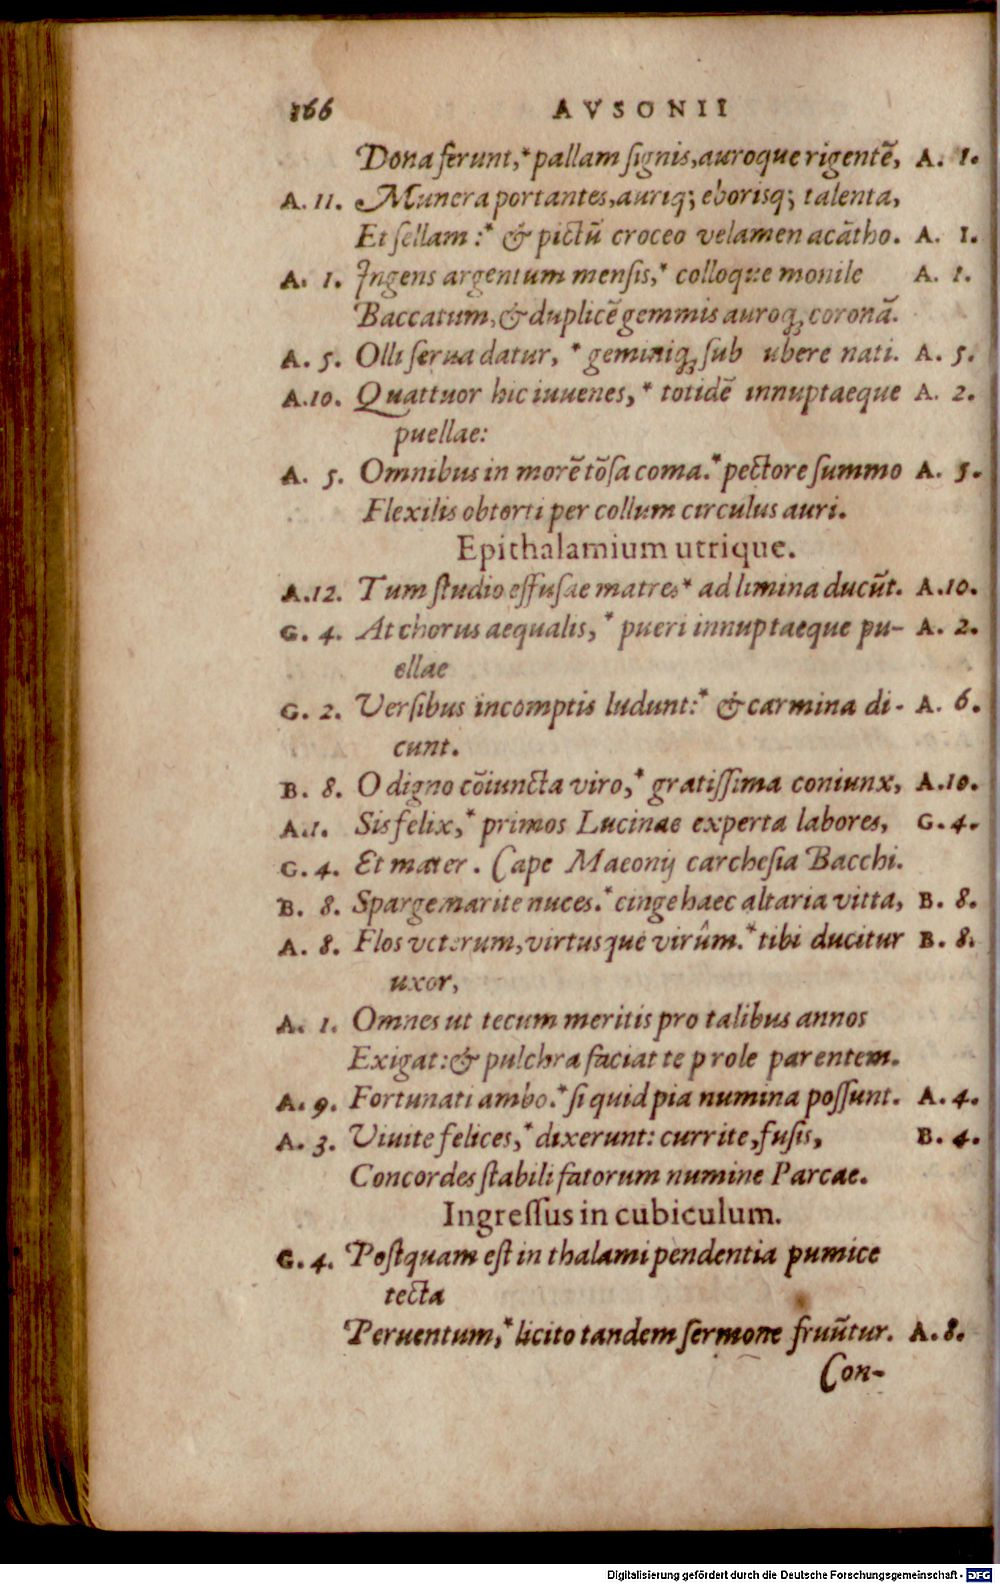 166 AVSONII
Dona ferunt,* pallam signis, auroque rigentẽ, A. 1.
A. 11. Munera portantes, auriq; eborisq; talenta,
Et sellam :* & pictũ croceo velamen acãtho. A. 1.
A. 1. Ingens argentum mensis,* colloque monile A. 1.
Baccatum, & duplicẽ gemmis auroq; coronã.
A. 5. Olli serua datur, * geminiq; sub ubere nati. A. 5.
A.10. Quattuor hic iuuenes,* totidẽ innuptaeque A. 2.
puellae:
A. 5. Omnibus in morẽ tõsa coma.* pectore summo A. 5.
Flexilis obtorti per collum circulus auri.
Epithalamium utrique.
A.12. Tum studio effusae matres* ad limina ducũt. A.10.
G. 4. At chorus aequalis,* pueri innuptaeque pu- A. 2.
ellae
G. 2. Versibus incomptis ludunt:* & carmina di- A. 6.
cunt.
B. 8. O digno cõiuncta viro,* gratissima coniunx, A.10.
A.1. Sis felix,* primos Lucinae experta labores, G. 4.
G. 4. Et mater. Cape Maeonij carchesia Bacchi.
B. 8. Sparge marite nuces.* cinge haec altaria vitta, B. 8.
A. 8. Flos veterum, virtusque virûm.* tibi ducitur B. 8.
uxor,
A. 1. Omnes ut tecum meritis pro talibus annos
Exigat: & pulchra faciat te prole parentem.
A. 9. Fortunati ambo.* si quid pia numina possunt. A. 4.
A. 3. Viuite felices,* dixerunt: currite, fusis, B. 4.
Concordes stabili fatorum numine Parcae.
Ingressus in cubiculum.
G. 4. Postquam est in thalami pendentia pumice
tecta
Peruentum,* licito tandem sermone fruũtur. A. 8.
Con-
Digitalisierung gefördert durch die Deutsche Forschungsgemeinschaft - DFG